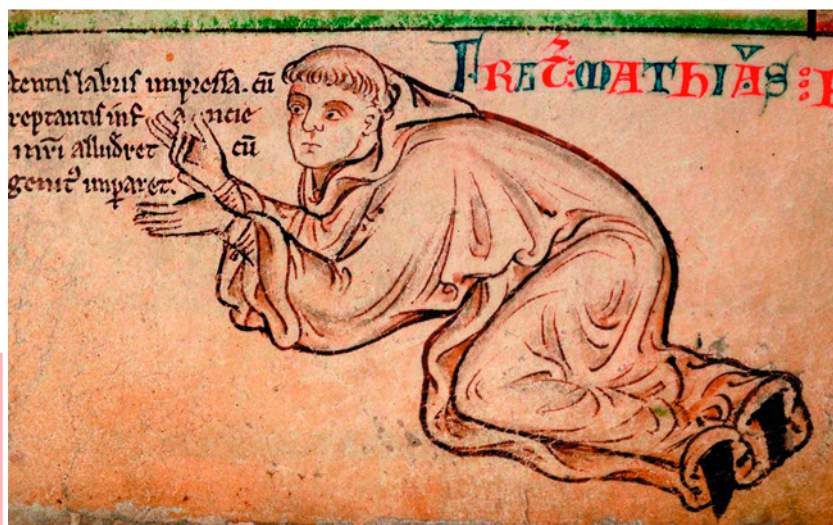 ctentis labiis impressa. cū
reptantis inf ancie
mr̄i alludret cū
genitꝰ imꝑaret.
FRAT͛ MATHIAS :